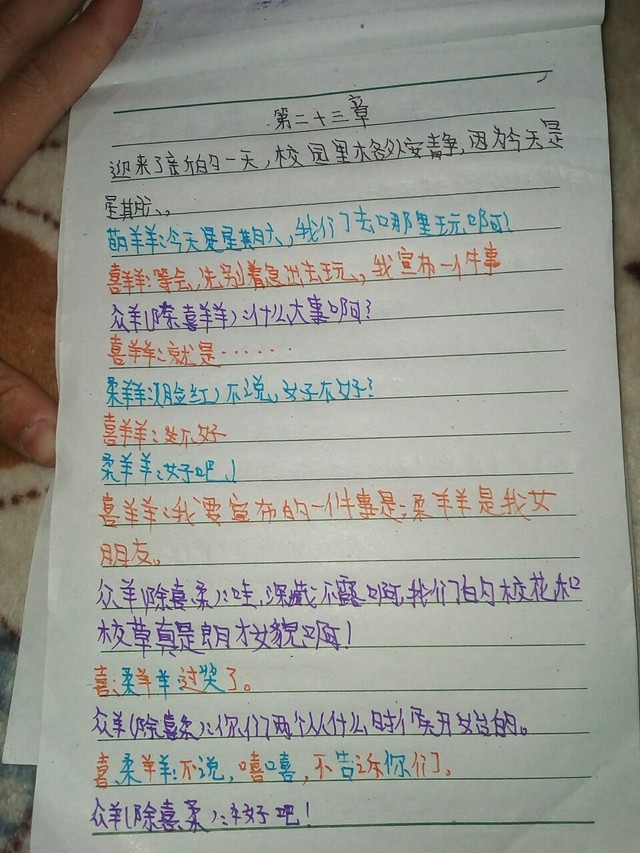 第二十三章
迎来了新的一天,校园里格外安静,因为今天是
星期六。
萌羊羊:今天是星期六,我们去哪里玩啊!
喜羊羊:等会,先别着急出去玩。我宣布一件事
众羊(除喜羊羊):什么大事啊?
喜羊羊:就是……
柔羊羊:(脸红)不说,好不好?
喜羊羊:不好
柔羊羊:好吧!
喜羊羊:我要宣布的一件事是:柔羊羊是我女
朋友。
众羊(除喜.柔):哇,深藏不露啊,我们的校花和
校草真是郎才女貌啊!
喜.柔羊羊:过奖了。
众羊(除喜柔):你们两个人什么时候开始的。
喜.柔羊羊:不说,嘻嘻,不告诉你们。
众羊(除喜.柔):好吧!